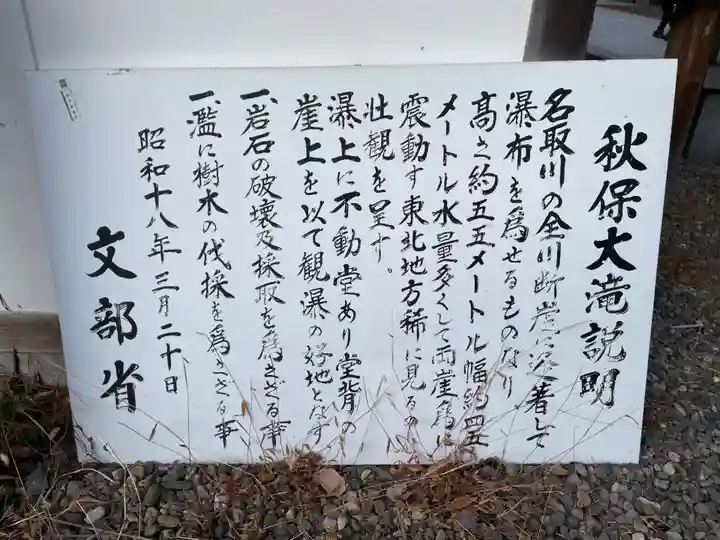 秋保大滝説明
名取川の全川断崖に逢著して
瀑布を為せるものなり
高さ約五五メートル幅約四五
メートル水量多くして両崖為に
震動す東北地方稀に見るの
壮観を呈す。
瀑上に不動堂あり堂背の
崖上を以て観瀑の好地となす
一、岩石の破壊及採取を為さざる事
一、濫に樹木の伐採を為さざる事
昭和十八年三月二十日
文部省